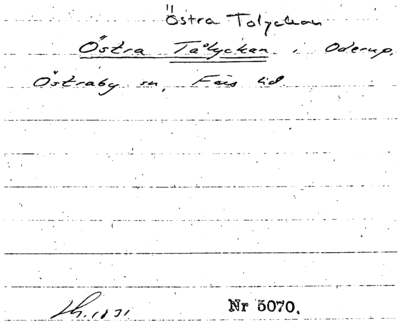 Östra Tolyckan
Östra Tålyckan, Oderup,
Östraby sn, Färs hd.
Nr 5070.